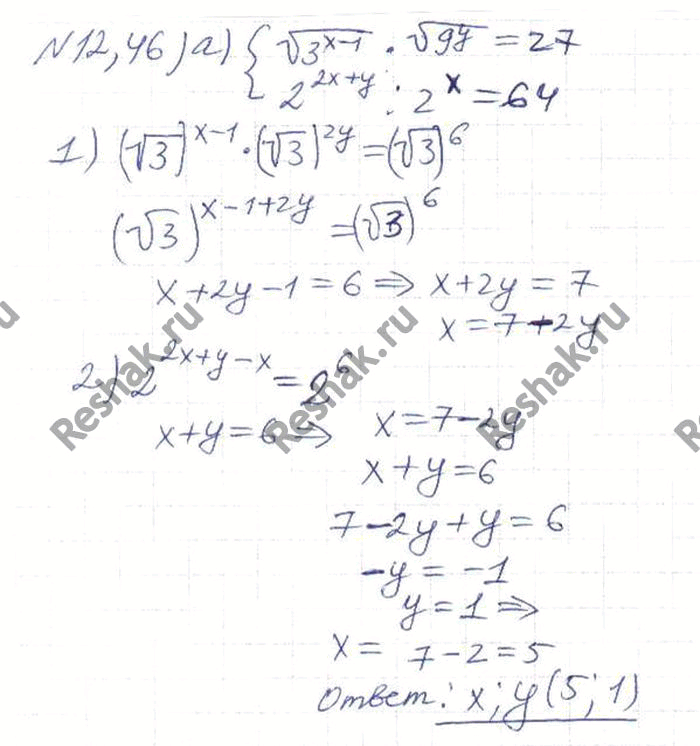 N12,46 а) { √3^(x-1) · √9^y = 27
2^(2x+y) : 2^x = 64
1) (√3)^(x-1) · (√3)^(2y) = (√3)^6
(√3)^(x-1+2y) = (√3)^6
x+2y-1=6 ⇒ x+2y=7
x=7-2y
2) 2^(2x+y-x) = 2^6
x+y=6 ⇒ x=7-2y
x+y=6
7-2y+y=6
-y=-1
y=1 ⇒
x= 7-2=5
Ответ: x; y (5; 1)
Reshak.ru
Reshak.ru
Reshak.ru